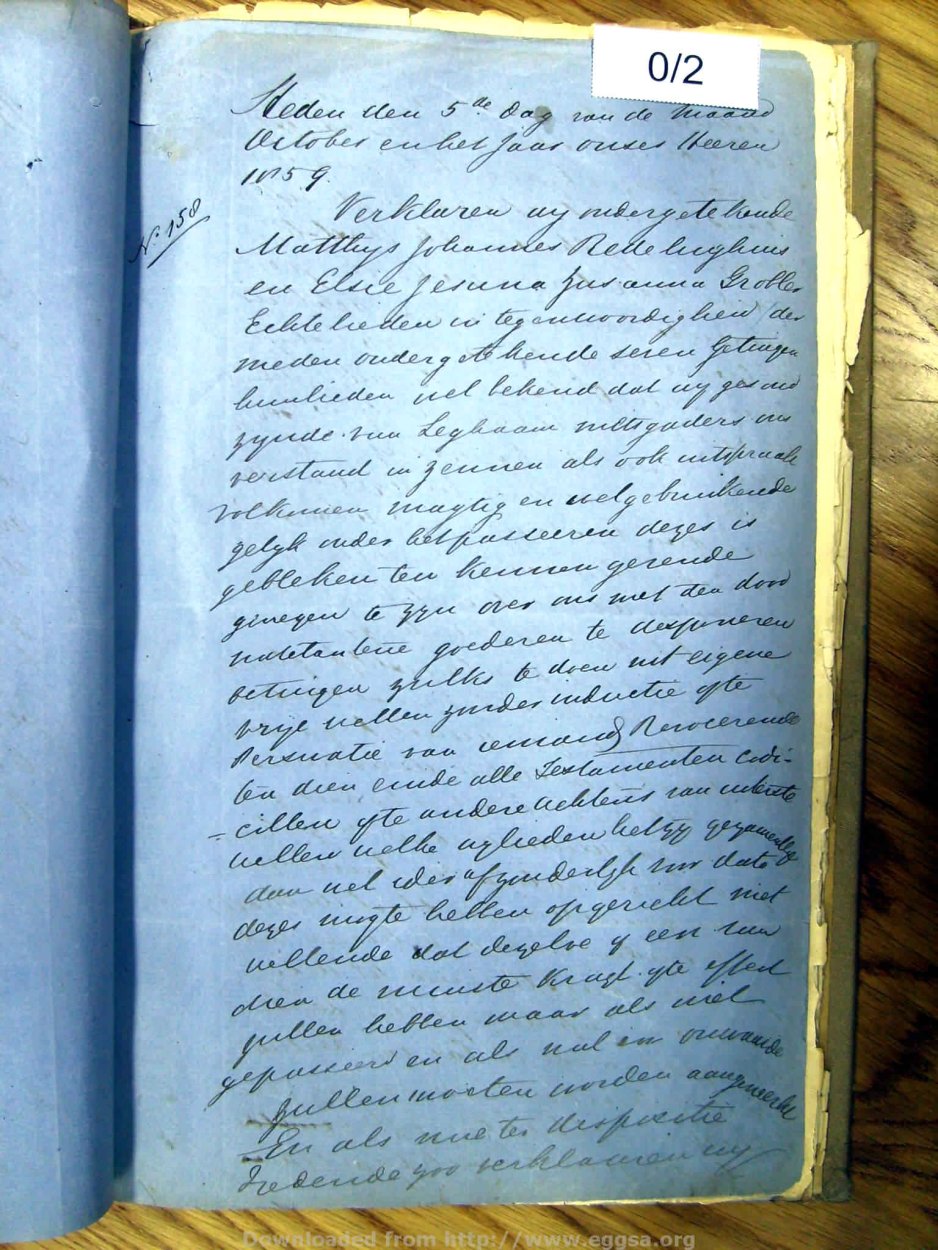 0/2
Heden den 5de dag van de maand
October en het Jaar onzes Heeren
1859.
No. 158
Verklaren wy ondergetekende
Matthys Johannes Redelinghuis
en Elsie Jesina Susanna Grobler
Echtelieden in tegenwoordigheid der
meden ondergetekende seven getuigen
hunlieden wel bekend dat wy gezond
zynde van Leghaam mitsgaders ons
verstand in zennen als ook uitspraak
volkomen magtig en wel gebruikende
gelyk onder het passeeren dezes is
gebleken ten kennen gevende
genegen te zyn over ons met den dood
natetaulene goederen te desponeren
betuigen zulks te doen uit eigene
vrije willen zonder inductie ofte
Persuatie van iemand Revocerende
ten dien einde alle Testamenten codi-
=cillen ofte andere acktens van uiterste
willen welke wylieden het zy gezamentlyk
dan wel ider afzonderlyk voor dato
dezes mogte hebben opgericht niet
willende dat dezelve of een van
dien de minste kragt ofte effect
zullen hebben maar als niet
gepasseerd en als nul en onwaarde
zullen moeten worden aangemerkt
En als nu ter dispositie
tredende zoo verklaaren wy
Downloaded from http://www.eggsa.org